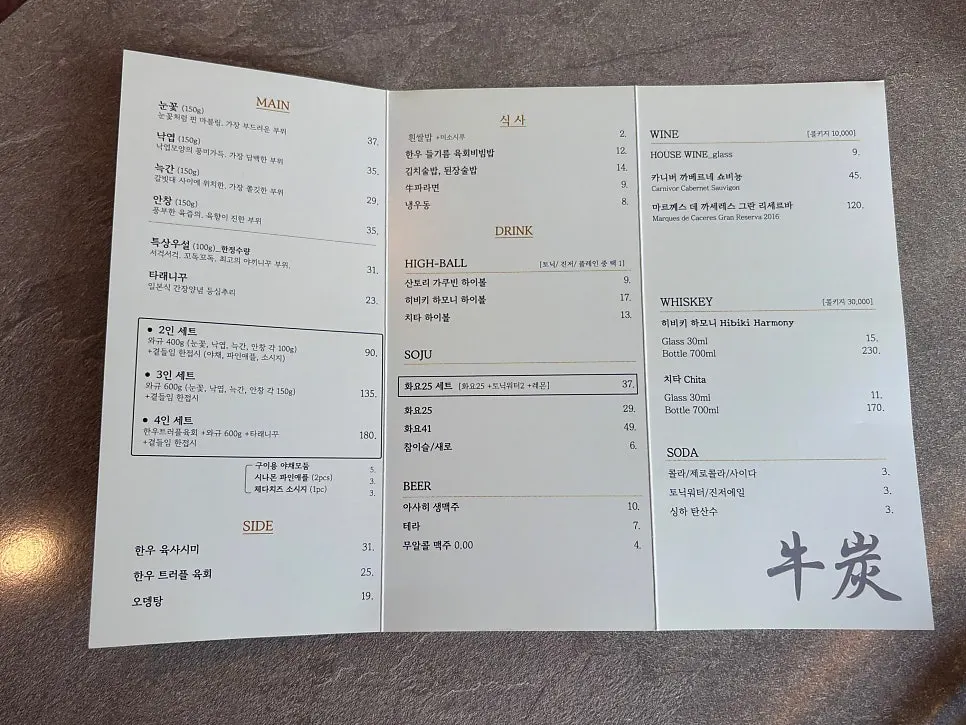 MAIN
눈꽃 (150g)
눈꽃처럼 핀 마블링. 가장 부드러운 부위
37.
낙엽 (150g)
낙엽모양의 풍미가득. 가장 담백한 부위
35.
늑간 (150g)
갈빗대 사이에 위치한. 가장 쫄깃한 부위
29.
안창 (150g)
풍부한 육즙의. 육향이 진한 부위
35.
특상우설 (100g)_한정수량
서걱서걱. 꼬독꼬독. 최고의 야끼니꾸 부위.
31.
타래니꾸
일본식 간장양념 등심추리
23.
• 2인 세트
와규 400g (눈꽃, 낙엽, 늑간, 안창 각 100g)
+곁들임 한접시 (야채, 파인애플, 소시지)
90.
• 3인 세트
와규 600g (눈꽃, 낙엽, 늑간, 안창 각 150g)
+곁들임 한접시
135.
• 4인 세트
한우트러플육회 +와규 600g +타래니꾸
+곁들임 한접시
180.
구이용 야채모둠 5.
시나몬 파인애플 (2pcs) 3.
체다치즈 소시지 (1pc) 3.
SIDE
한우 육사시미 31.
한우 트러플 육회 25.
오뎅탕 19.
식사
흰쌀밥 +미소시루 2.
한우 들기름 육회비빔밥 12.
김치술밥, 된장술밥 14.
牛파라면 9.
냉우동 8.
DRINK
HIGH-BALL [토닉/ 진저/ 플레인 중 택 1]
산토리 가쿠빈 하이볼 9.
히비키 하모니 하이볼 17.
치타 하이볼 13.
SOJU
화요25 세트 [화요25 +토닉워터2 +레몬] 37.
화요25 29.
화요41 49.
참이슬/새로 6.
BEER
아사히 생맥주 10.
테라 7.
무알콜 맥주 0.00 4.
WINE [콜키지 10,000]
HOUSE WINE_glass 9.
카니버 까베르네 쇼비뇽 45.
Carnivor Cabernet Sauvignon
마르께스 데 까세레스 그란 리세르바 120.
Marques de Caceres Gran Reserva 2016
WHISKEY [콜키지 30,000]
히비키 하모니 Hibiki Harmony
Glass 30ml 15.
Bottle 700ml 230.
치타 Chita
Glass 30ml 11.
Bottle 700ml 170.
SODA
콜라/제로콜라/사이다 3.
토닉워터/진저에일 3.
싱하 탄산수 3.
牛炭